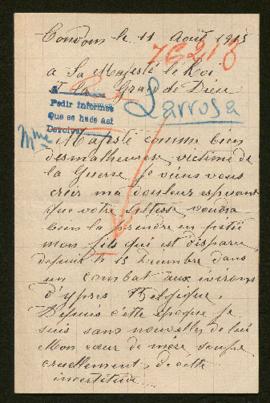 Condom le 11 Août 1915
76213
A Sa Majesté le Roi
Grâce de Dieu
Pedir informes
Que se hade así
Larrosa
Mme
Majesté comme bien
des malheureuse, victime de
la Guerre, je viens vous
crier ma douleur espérant
que votre Altesse voudra
bien la prendre en pitié
mon fils qui est disparu
depuis le 15 Décembre dans
un combat aux environs
d'Ypres Belgique,
Depuis cette époque je
suis sans nouvelles de lui
Mon cœur de mère souffre
cruellement, de cette
incertitude